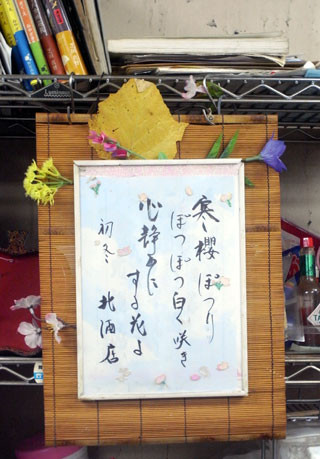 寒櫻ぽつり
ぽつぽつ白く咲き
心静かに
する花よ
初冬 北酒店